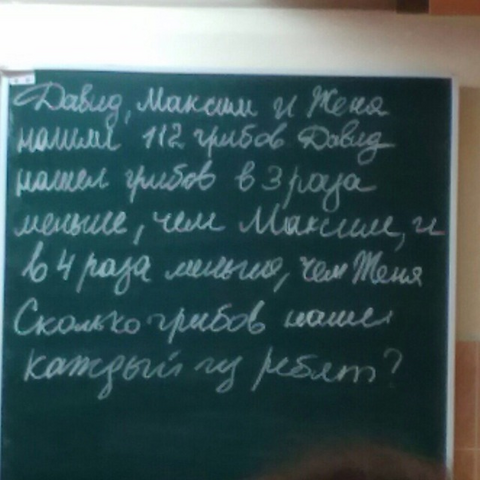 Давид, Максим и Женя
нашли 112 грибов Давид
нашел грибов в 3 раза
меньше, чем Максим, и
в 4 раза меньше, чем Женя
Сколько грибов нашел
каждый из ребят?